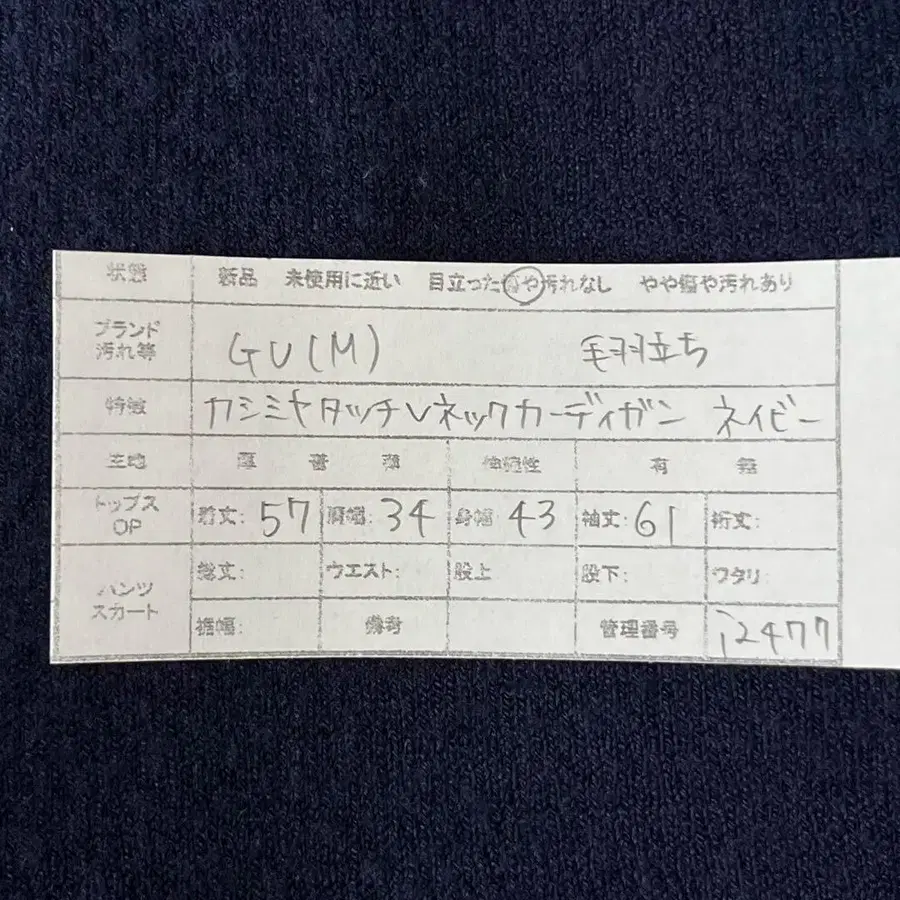 状態 新品 未使用に近い 目立った傷や汚れなし やや傷や汚れあり
ブランド
汚れ等 GU(M) 毛羽立ち
特徴 カシミヤタッチVネックカーディガン ネイビー
生地 厚 普 薄 伸縮性 有 無
トップス
OP 着丈: 57 肩幅: 34 身幅: 43 袖丈: 61 裄丈:
パンツ
スカート 総丈: ウエスト: 股上 股下: ワタリ:
裾幅: 備考 管理番号 i2477